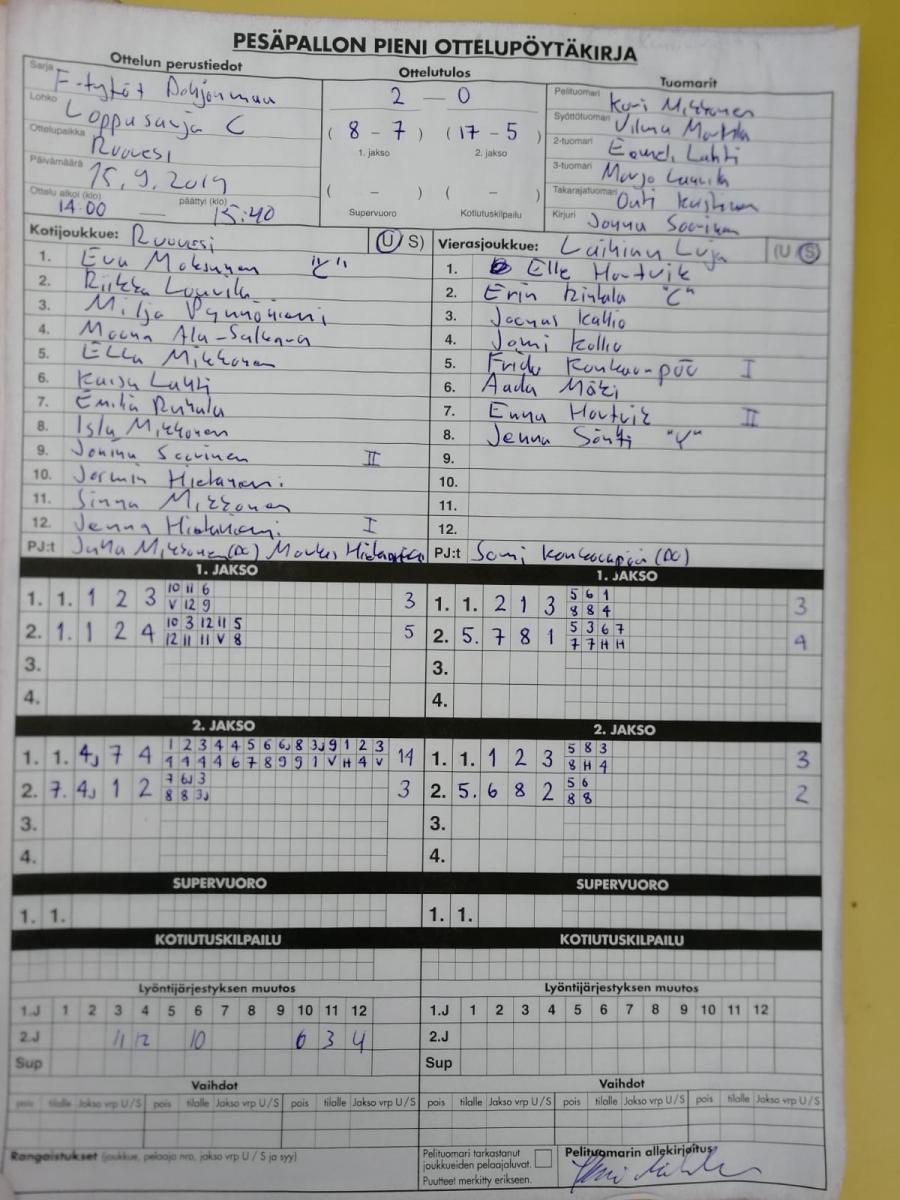 PESÄPALLON PIENI OTTELUPÖYTÄKIRJA
Ottelun perustiedot
Sarja F-tytöt Pohjanmaa
Lohko Loppusarja C
Ottelupaikka Ruovesi
Päivämäärä 15.9.2019
Ottelu alkoi (klo) 14:00 — päättyi (klo) 15:40
Ottelutulos
2 — 0
( 8 - 7 ) ( 17 - 5 )
1. jakso 2. jakso
( - ) ( - )
Supervuoro Kotiutuskilpailu
Tuomarit
Pelituomari Mikkonen
Syöttötuomari Vilma
2-tuomari Lahti
3-tuomari Marjo
Takarajatuomari Outi
Kirjuri Joanna Saarinen
Kotijoukkue: Ruovesi (U/S)
1. Eva "C"
2. Riikka
3. Milja
4. Moona Ala-
5. Ella Mikkonen
6. Kaisa Lahti
7. Emilia
8. Isla Mikkonen
9. Saarinen II
10. Hietaniemi
11. Sinna Mikkonen
12. Jenna Hietaniemi I
PJ:t Jutta Mikkonen (PC)
Vierasjoukkue: Laihian Luja (U/S)
1. Elle Hartvik
2. Erin "C"
3. Joonas Kallio
4. Jomi Kallio
5. Frida Kankaanpää I
6. Aada Mäki
7. Enna Hartvik II
8. Jenna "V"
9.
10.
11.
12.
PJ:t Somi Kankaanpää (PC)
1. JAKSO
10 11 6
1. 1. 1 2 3 V 12 9 3
10 3 12 11 5
2. 1. 1 2 4 12 11 11 V 8 5
3.
4.
1. JAKSO
5 6 1
1. 1. 2 1 3 8 8 4 3
5 3 6 7
2. 5. 7 8 1 7 7 H H 4
3.
4.
2. JAKSO
1 2 3 4 4 5 6 6J 8 3J 9 1 2 3
1. 1. 4J 7 4 4 4 4 4 6 7 8 9 9 1 V H 4 V 14
7 6J 3
2. 7. 4J 1 2 8 8 3J 3
3.
4.
2. JAKSO
5 8 3
1. 1. 1 2 3 8 H 4 3
5 6
2. 5. 6 8 2 8 8 2
3.
4.
SUPERVUORO
1. 1.
SUPERVUORO
1. 1.
KOTIUTUSKILPAILU
KOTIUTUSKILPAILU
Lyöntijärjestyksen muutos
1.J 1 2 3 4 5 6 7 8 9 10 11 12
2.J 11 12 10 6 3 4
Sup
Lyöntijärjestyksen muutos
1.J 1 2 3 4 5 6 7 8 9 10 11 12
2.J
Sup
Vaihdot
pois tilalle Jakso vrp U/S pois tilalle Jakso vrp U/S pois tilalle Jakso vrp U/S
Vaihdot
pois tilalle Jakso vrp U/S pois tilalle Jakso vrp U/S pois tilalle Jakso vrp U/S
Rangaistukset (joukkue, pelaaja nro, jakso vrp U / S ja syy)
Pelituomari tarkastanut
joukkueiden pelaajaluvat.
Puutteet merkitty erikseen.
Pelituomarin allekirjoitus